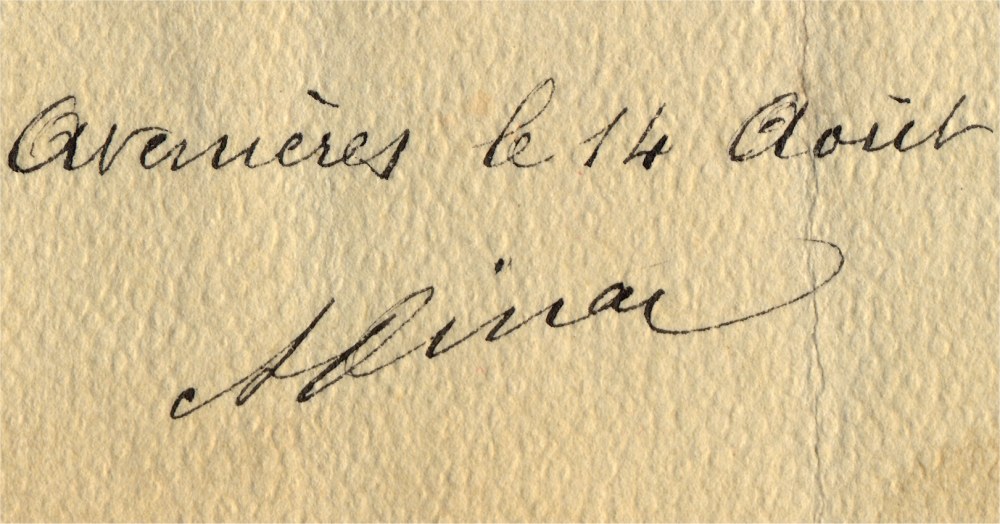 Avenières le 14 Août